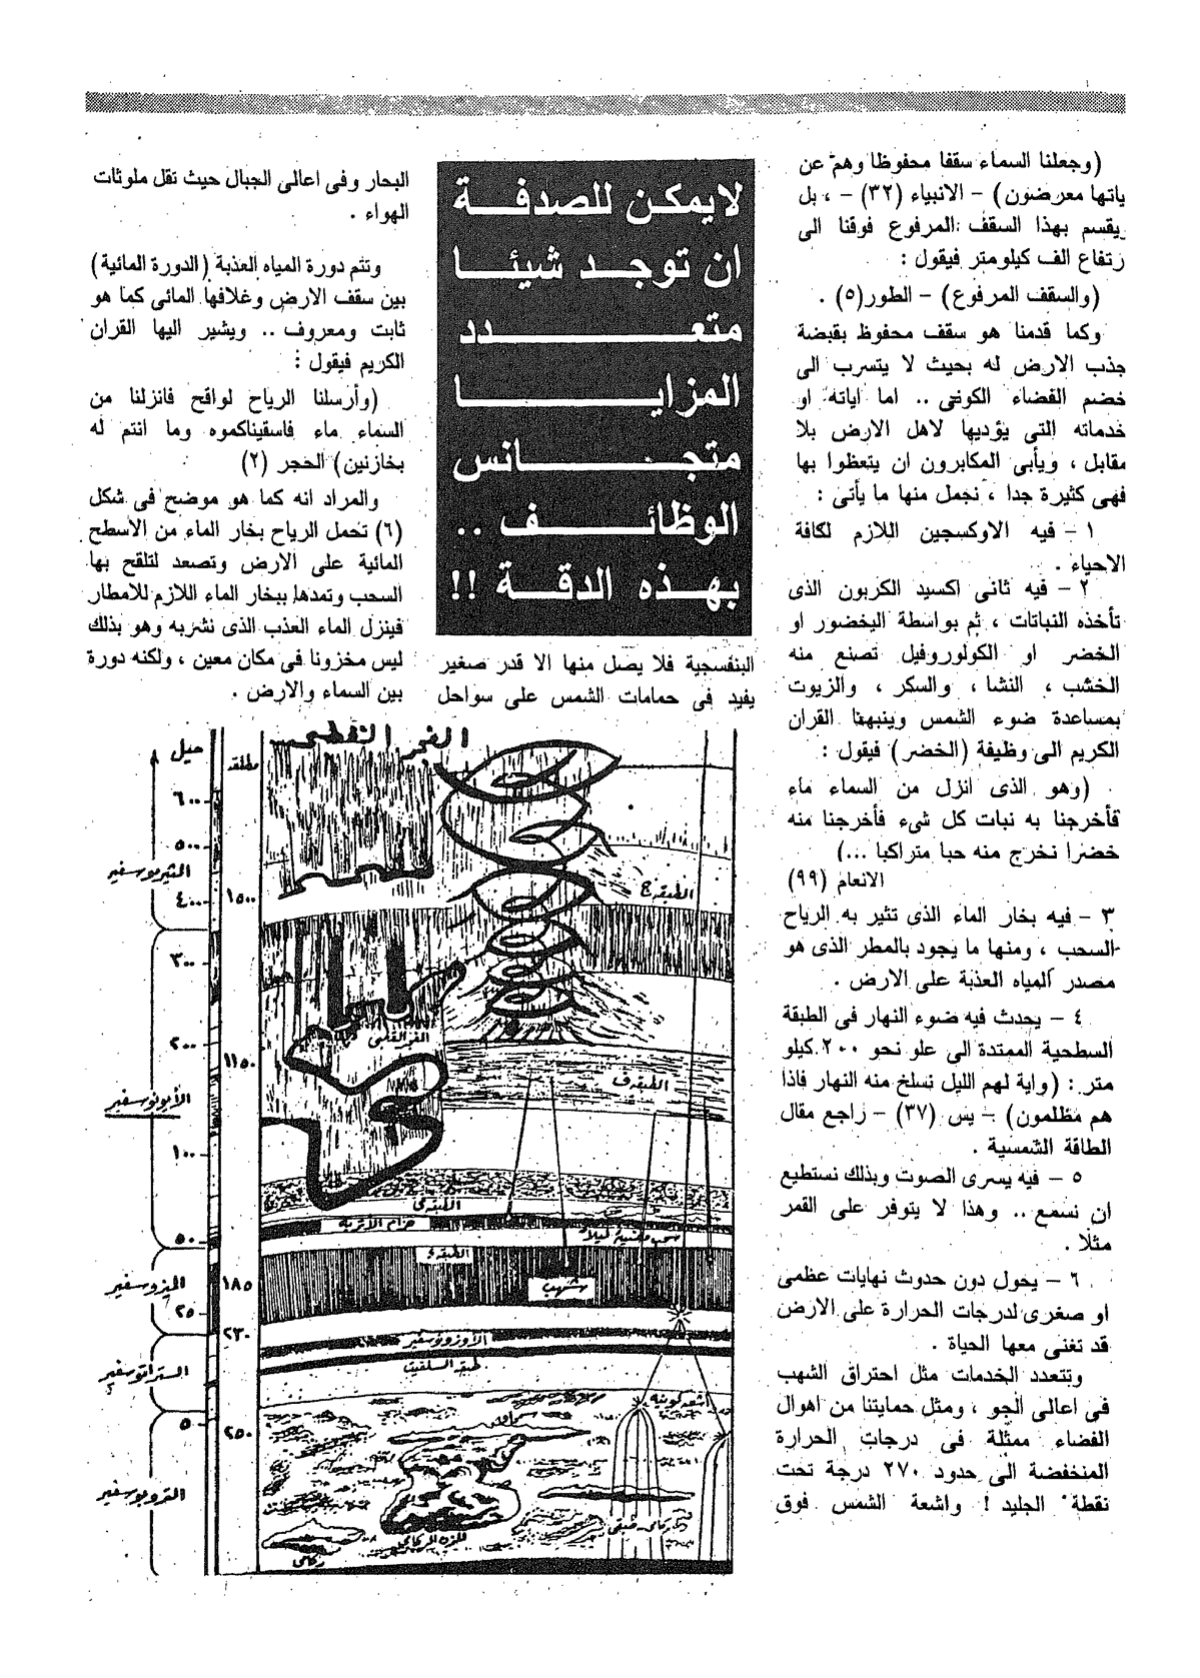 (وجعلنا السماء سقفا محفوظا وهم عن
ياتها معرضون) – الانبياء (٣٢) – ، بل
يقسم بهذا السقف المرفوع فوقنا الى
رتفاع الف كيلومتر فيقول :
(والسقف المرفوع) – الطور(٥) .
وكما قدمنا هو سقف محفوظ بقبضة
جذب الارض له بحيث لا يتسرب الى
خضم الفضاء الكونى .. اما اياته او
خدماته التى يؤديها لاهل الارض بلا
مقابل ، ويأبى المكابرون ان يتعظوا بها
فهى كثيرة جدا ، نجمل منها ما يأتى :
١ – فيه الاوكسجين اللازم لكافة
الاحياء .
٢ – فيه ثانى اكسيد الكربون الذى
تأخذه النباتات ، ثم بواسطة اليخضور او
الخضر او الكولوروفيل تصنع منه
الخشب ، النشا ، والسكر ، والزيوت
بمساعدة ضوء الشمس وينبهنا القران
الكريم الى وظيفة (الخضر) فيقول :
(وهو الذى انزل من السماء ماء
فأخرجنا به نبات كل شىء فأخرجنا منه
خضرا نخرج منه حبا متراكبا ...)
الانعام (٩٩)
٣ – فيه بخار الماء الذى تثير به الرياح
السحب ، ومنها ما يجود بالمطر الذى هو
مصدر المياه العذبة على الارض .
٤ – يحدث فيه ضوء النهار فى الطبقة
السطحية الممتدة الى علو نحو ٢٠٠ كيلو
متر : (واية لهم الليل نسلخ منه النهار فاذا
هم مظلمون) – يس (٣٧) – راجع مقال
الطاقة الشمسية .
٥ – فيه يسرى الصوت وبذلك نستطيع
ان نسمع .. وهذا لا يتوفر على القمر
مثلا .
٦ – يحول دون حدوث نهايات عظمى
او صغرى لدرجات الحرارة على الارض
قد تغنى معها الحياة .
وتتعدد الخدمات مثل احتراق الشهب
فى اعالى الجو ، ومثل حمايتنا من اهوال
الفضاء ممثلة فى درجات الحرارة
المنخفضة الى حدود ٢٧٠ درجة تحت
نقطة الجليد ! واشعة الشمس فوق
لايمكن للصدفة
ان توجد شيئا
متعدد
المزايا
متجانس
الوظائف ..
بهذه الدقة !!
البنفسجية فلا يصل منها الا قدر صغير
يفيد فى حمامات الشمس على سواحل
البحار وفى اعالى الجبال حيث تقل ملوثات
الهواء .
وتتم دورة المياه العذبة (الدورة المائية)
بين سقف الارض وغلافها المائى كما هو
ثابت ومعروف .. ويشير اليها القران
الكريم فيقول :
(وأرسلنا الرياح لواقح فانزلنا من
السماء ماء فاسقيناكموه وما انتم له
بخازنين) الحجر (٢)
والمراد انه كما هو موضح فى شكل
(٦) تحمل الرياح بخار الماء من الاسطح
المائية على الارض وتصعد لتلقح بها
السحب وتمدها ببخار الماء اللازم للامطار
فينزل الماء العذب الذى نشربه وهو بذلك
ليس مخزونا فى مكان معين ، ولكنه دورة
بين السماء والارض .
الفجر القطبى
ميل
مطلقه
٦٠٠
٥٠٠
الثيرموسفير
٤٠٠
١٥٠٠
٣٠٠
٢٠٠
١١٥٠
الأيونوسفير
١٠٠
٥٠
الميزوسفير
١٨٥
٢٥
٢٣٠
الستراتوسفير
٥
٢٥٠
التروبوسفير
الطبقة ج
الطبقة ف
حزام الأتربة
شهب
الأوزونوسفير
اشعة كونية
ركامى